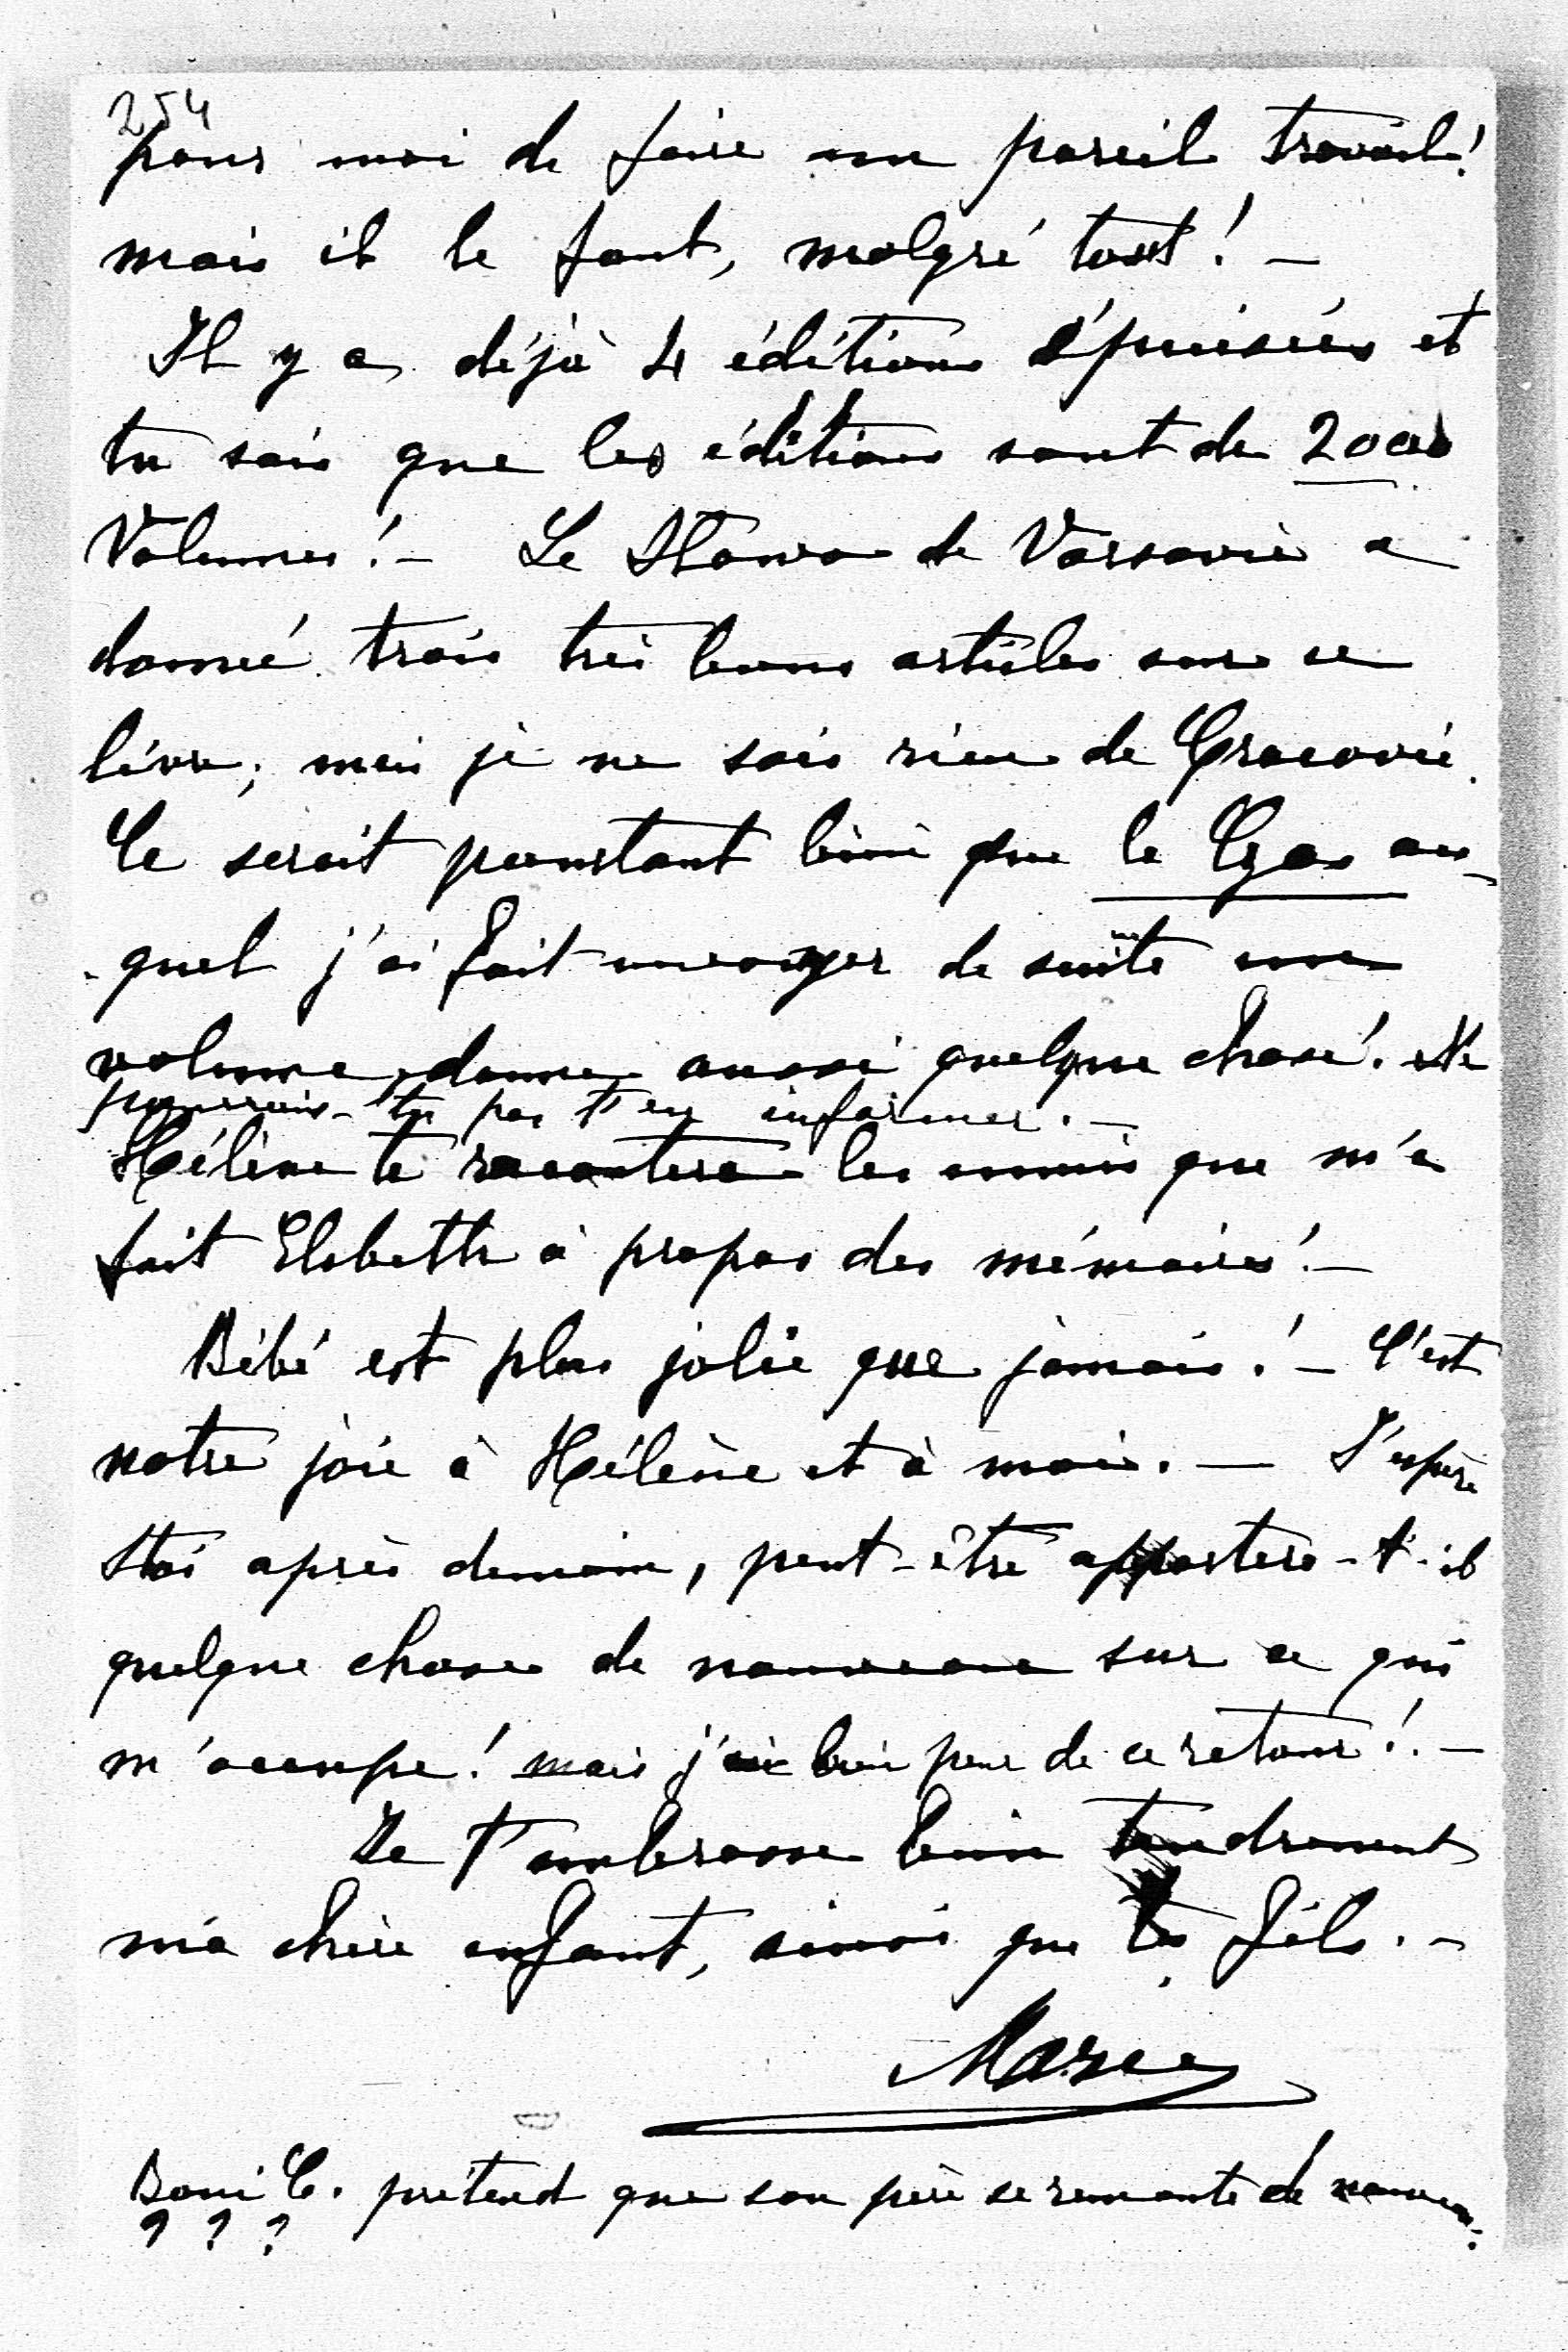 254
pour moi de faire un pareil travail!
mais il le faut, malgré tout! –
Il y a déjà 4 éditions épuisées et
tu sais que les éditions sont de 2000
Volumes! – Le Słowo de Varsovie a
donné trois très bons articles sur ce
livre; mais je ne sais rien de Cracovie.
Ce serait pourtant bien que le Czas au-
-quel j'ai fait envoyer de suite un
volume, donne aussi quelque chose! Ne
pourrais-tu pas t'en informer. –
Hélène te racontera les ennuis que m'a
fait Elsbeth à propos des mémoires! –
Bébé est plus jolie que jamais! – C'est
notre joie à Hélène et à moi. – J'espère
Stas après demain, peut-être apportera-t-il
quelque chose de nouveau sur ce qui
m'occupe! mais j'ai bien peur de ce retour!. –
Je t'embrasse bien tendrement
ma chère enfant, ainsi que tes fils. –
Marie
Boni C. prétend que son père se remonte de nouveau.
? ? ?